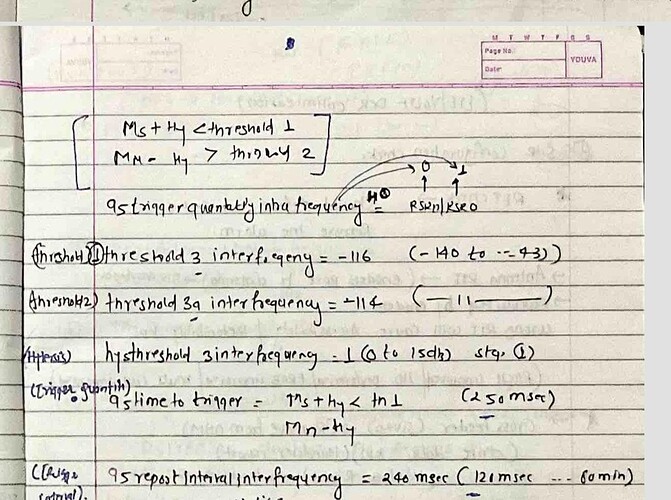 g
M T W T F S S
Page No.:
Date:
YOUVA
Ms + Hy < threshold 1
Mn - Hy > thrshld 2
0 1
a5 trigger quantity intra frequency = RSRP/RSRQ
(threshold 1) threshold 3 interfreqeny = -116 (-140 to -43))
(threshold 2) threshold 3a interfrequeny = -114 ( — 11 — )
(Hyteresis) hysthreshold 3 interfrequeng = 1 (0 to 15db) step (1)
(Trigger quantity)
a5 time to trigger = Ms + Hy < th 1 (250 msec)
Mn - Hy
a5 report Interval interfrequency = 240 msec (120 msec --- 60 min)